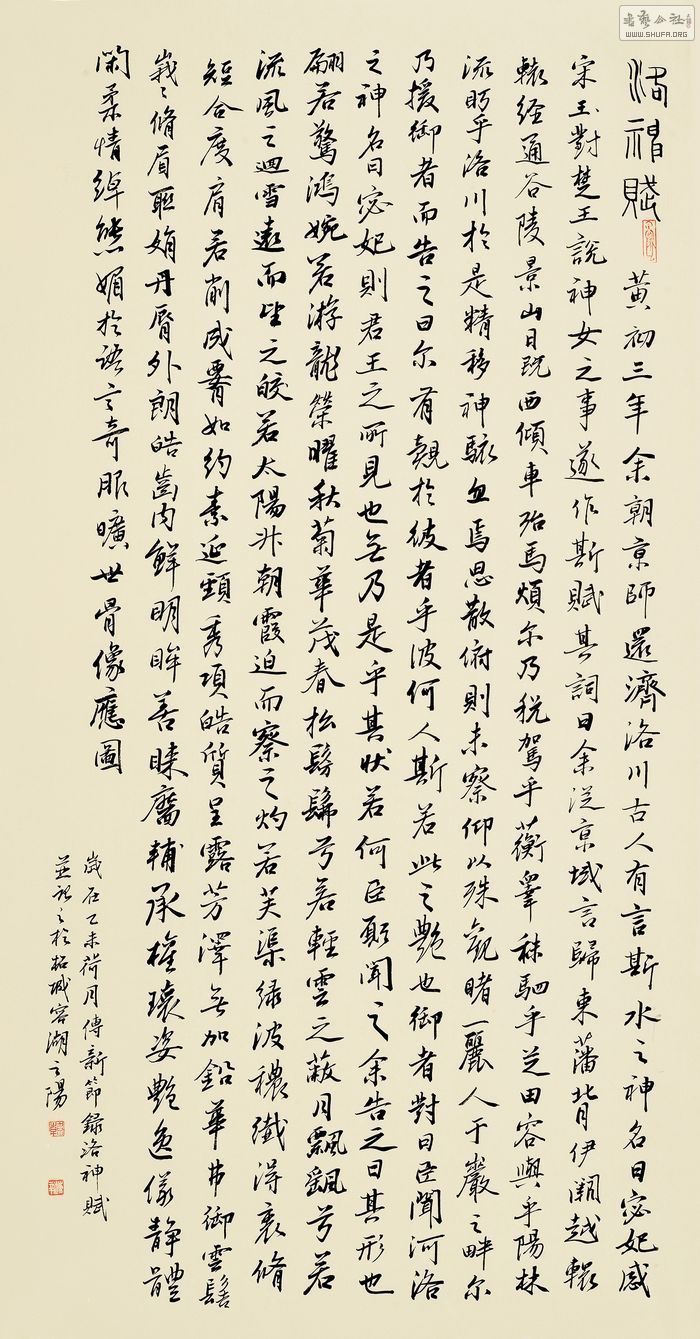 書藝公社
WWW.SHUFA.ORG
洛神賦
黃初三年余朝京師還濟洛川古人有言斯水之神名曰宓妃感
宋玉對楚王說神女之事遂作斯賦其詞曰余從京域言歸東藩背伊闕越轘
轅經通谷陵景山日既西傾車殆馬煩尔乃稅駕乎蘅皋秣駟乎芝田容與乎陽林
流眄乎洛川於是精移神駭忽焉思散俯則未察仰以殊觀睹一麗人于巖之畔尔
乃援御者而告之曰尔有覿於彼者乎彼何人斯若此之艷也御者對曰臣聞河洛
之神名曰宓妃則君王之所見也無乃是乎其狀若何臣願聞之余告之曰其形也
翩若驚鴻婉若游龍榮曜秋菊華茂春松髣髴兮若輕雲之蔽月飄颻兮若
流風之迴雪遠而望之皎若太陽升朝霞迫而察之灼若芙渠緑波穠纖得衷脩
短合度肩若削成腰如約素延頸秀項皓質呈露芳澤無加鉛華弗御雲髻
峩〻脩眉聯娟丹脣外朗皓齒內鮮明眸善睞靨輔承權瓌姿艷逸儀靜體
閑柔情綽態媚於語言奇服曠世骨像應圖
歲在乙未荷月傅新節錄洛神賦
並記之於柘城容湖之陽